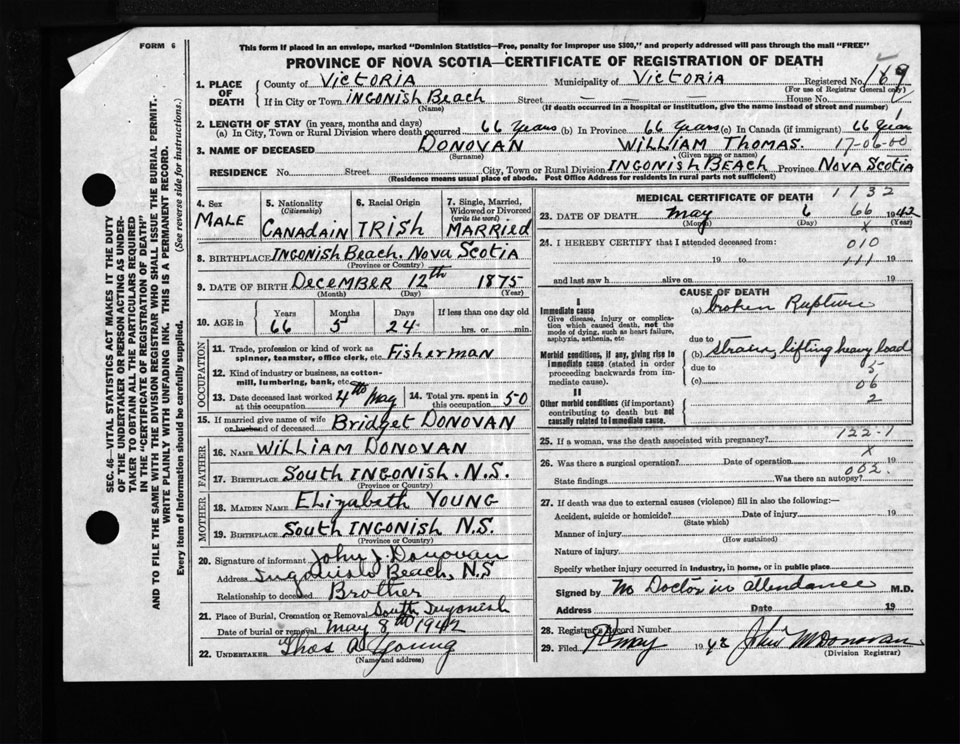 FORM 6
This form if placed in an envelope, marked "Dominion Statistics—Free, penalty for improper use $300," and properly addressed will pass through the mail "FREE"
PROVINCE OF NOVA SCOTIA—CERTIFICATE OF REGISTRATION OF DEATH
1. PLACE OF DEATH County of VICTORIA Municipality of VICTORIA Registered No. 189
(For use of Registrar General only)
If in City or Town INGONISH BEACH Street — — — House No.
(Name) (If death occurred in a hospital or institution, give the name instead of street and number)
2. LENGTH OF STAY (in years, months and days)
(a) In City, Town or Rural Division where death occurred 66 Years (b) In Province 66 Years (c) In Canada (if immigrant) 66 Years
3. NAME OF DECEASED DONOVAN WILLIAM THOMAS. 17-06-00
(Surname) (Given name or names)
RESIDENCE No. Street City, Town or Rural Division INGONISH BEACH Province NOVA SCOTIA
(Residence means usual place of abode. Post Office Address for residents in rural parts not sufficient)
4. Sex MALE
5. Nationality (Citizenship) CANADAIN
6. Racial Origin IRISH
7. Single, Married, Widowed or Divorced (write the word) MARRIED
8. BIRTHPLACE INGONISH BEACH, NOVA SCOTIA
(Province or Country)
9. DATE OF BIRTH DECEMBER 12th 1875
(Month) (Day) (Year)
10. AGE in Years 66 Months 5 Days 24 If less than one day old
hrs. or min.
OCCUPATION
11. Trade, profession or kind of work as spinner, teamster, office clerk, etc. FISHERMAN
12. Kind of industry or business, as cotton-mill, lumbering, bank, etc.
13. Date deceased last worked at this occupation 4th MAY
14. Total yrs. spent in this occupation 50
15. If married give name of wife or husband of deceased Bridget DONOVAN
FATHER
16. NAME WILLIAM DONOVAN
17. BIRTHPLACE SOUTH INGONISH. N.S.
(Province or Country)
MOTHER
18. MAIDEN NAME ELIZABETH YOUNG
19. BIRTHPLACE SOUTH INGONISH N.S.
(Province or Country)
20. Signature of informant John J. Donovan
Address Ingonish Beach, N.S
Relationship to deceased Brother
21. Place of Burial, Cremation or Removal South Ingonish
Date of burial or removal May 8th 1942
22. UNDERTAKER Thos D Young
(Name and address)
MEDICAL CERTIFICATE OF DEATH
1132
23. DATE OF DEATH May 6 66 1942
(Month) (Day) (Year)
X
24. I HEREBY CERTIFY that I attended deceased from:
010
19 to 111 19
and last saw h alive on 19
CAUSE OF DEATH
I
Immediate cause
Give disease, injury or complication which caused death, not the mode of dying, such as heart failure, asphyxia, asthenia, etc
(a) broken Rupture
due to
Morbid conditions, if any, giving rise to immediate cause (stated in order proceeding backwards from immediate cause).
(b) Strain, lifting heavy load
due to 5
(c) 06
2
II
Other morbid conditions (if important) contributing to death but not causally related to immediate cause.
25. If a woman, was the death associated with pregnancy? 122.1
X
26. Was there a surgical operation? Date of operation 19
002.
State findings Was there an autopsy?
27. If death was due to external causes (violence) fill in also the following:—
Accident, suicide or homicide? Date of injury 19
(State which)
Manner of injury
(How sustained)
Nature of injury
Specify whether injury occurred in industry, in home, or in public place
Signed by no Doctor in attendance M.D.
Address Date 19
28. Registrar's Record Number
29. Filed May 1942 John M Donovan
(Division Registrar)
SEC. 46—VITAL STATISTICS ACT MAKES IT THE DUTY OF THE UNDERTAKER OR PERSON ACTING AS UNDERTAKER TO OBTAIN ALL THE PARTICULARS REQUIRED IN THE "CERTIFICATE OF REGISTRATION OF DEATH" AND TO FILE THE SAME WITH THE DIVISION REGISTRAR WHO SHALL ISSUE THE BURIAL PERMIT.
WRITE PLAINLY WITH UNFADING INK. THIS IS A PERMANENT RECORD.
Every item of information should be carefully supplied. (See reverse side for instructions.)